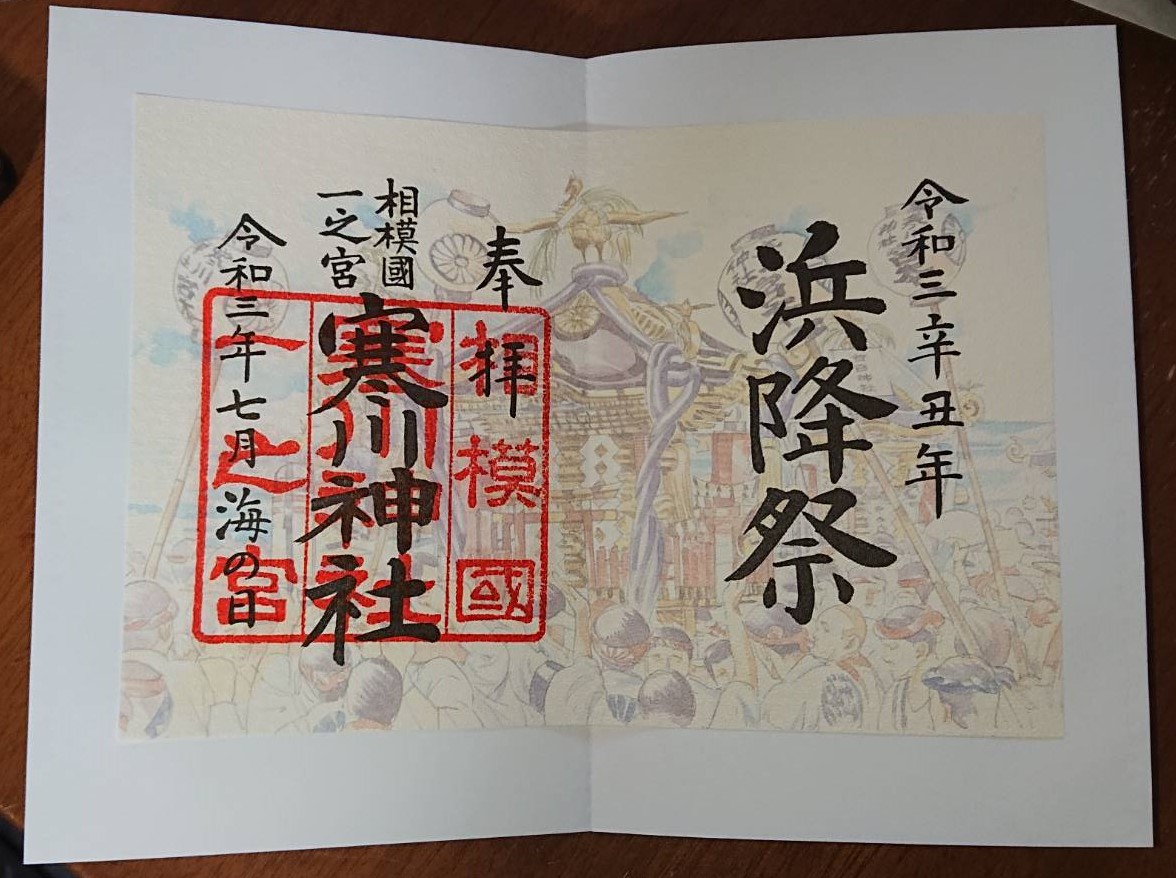 令和三辛丑年
浜降祭
奉拝
相模國
一之宮
寒川神社
令和三年七月海の日
相模國
寒川神社
一之宮